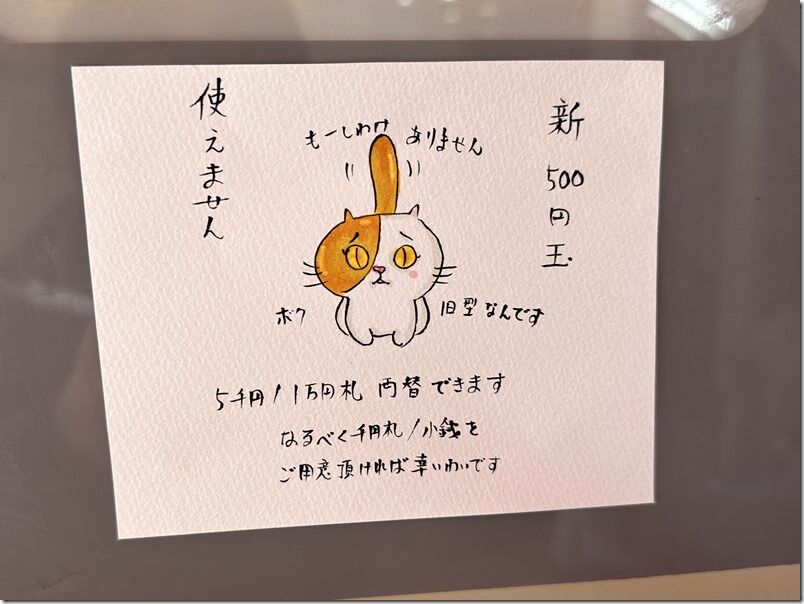 新 500円玉
使えません
もーしわけ ありません
ボク 旧型なんです
5千円/1万円札 両替できます
なるべく千円札/小銭を
ご用意頂ければ幸いわいです